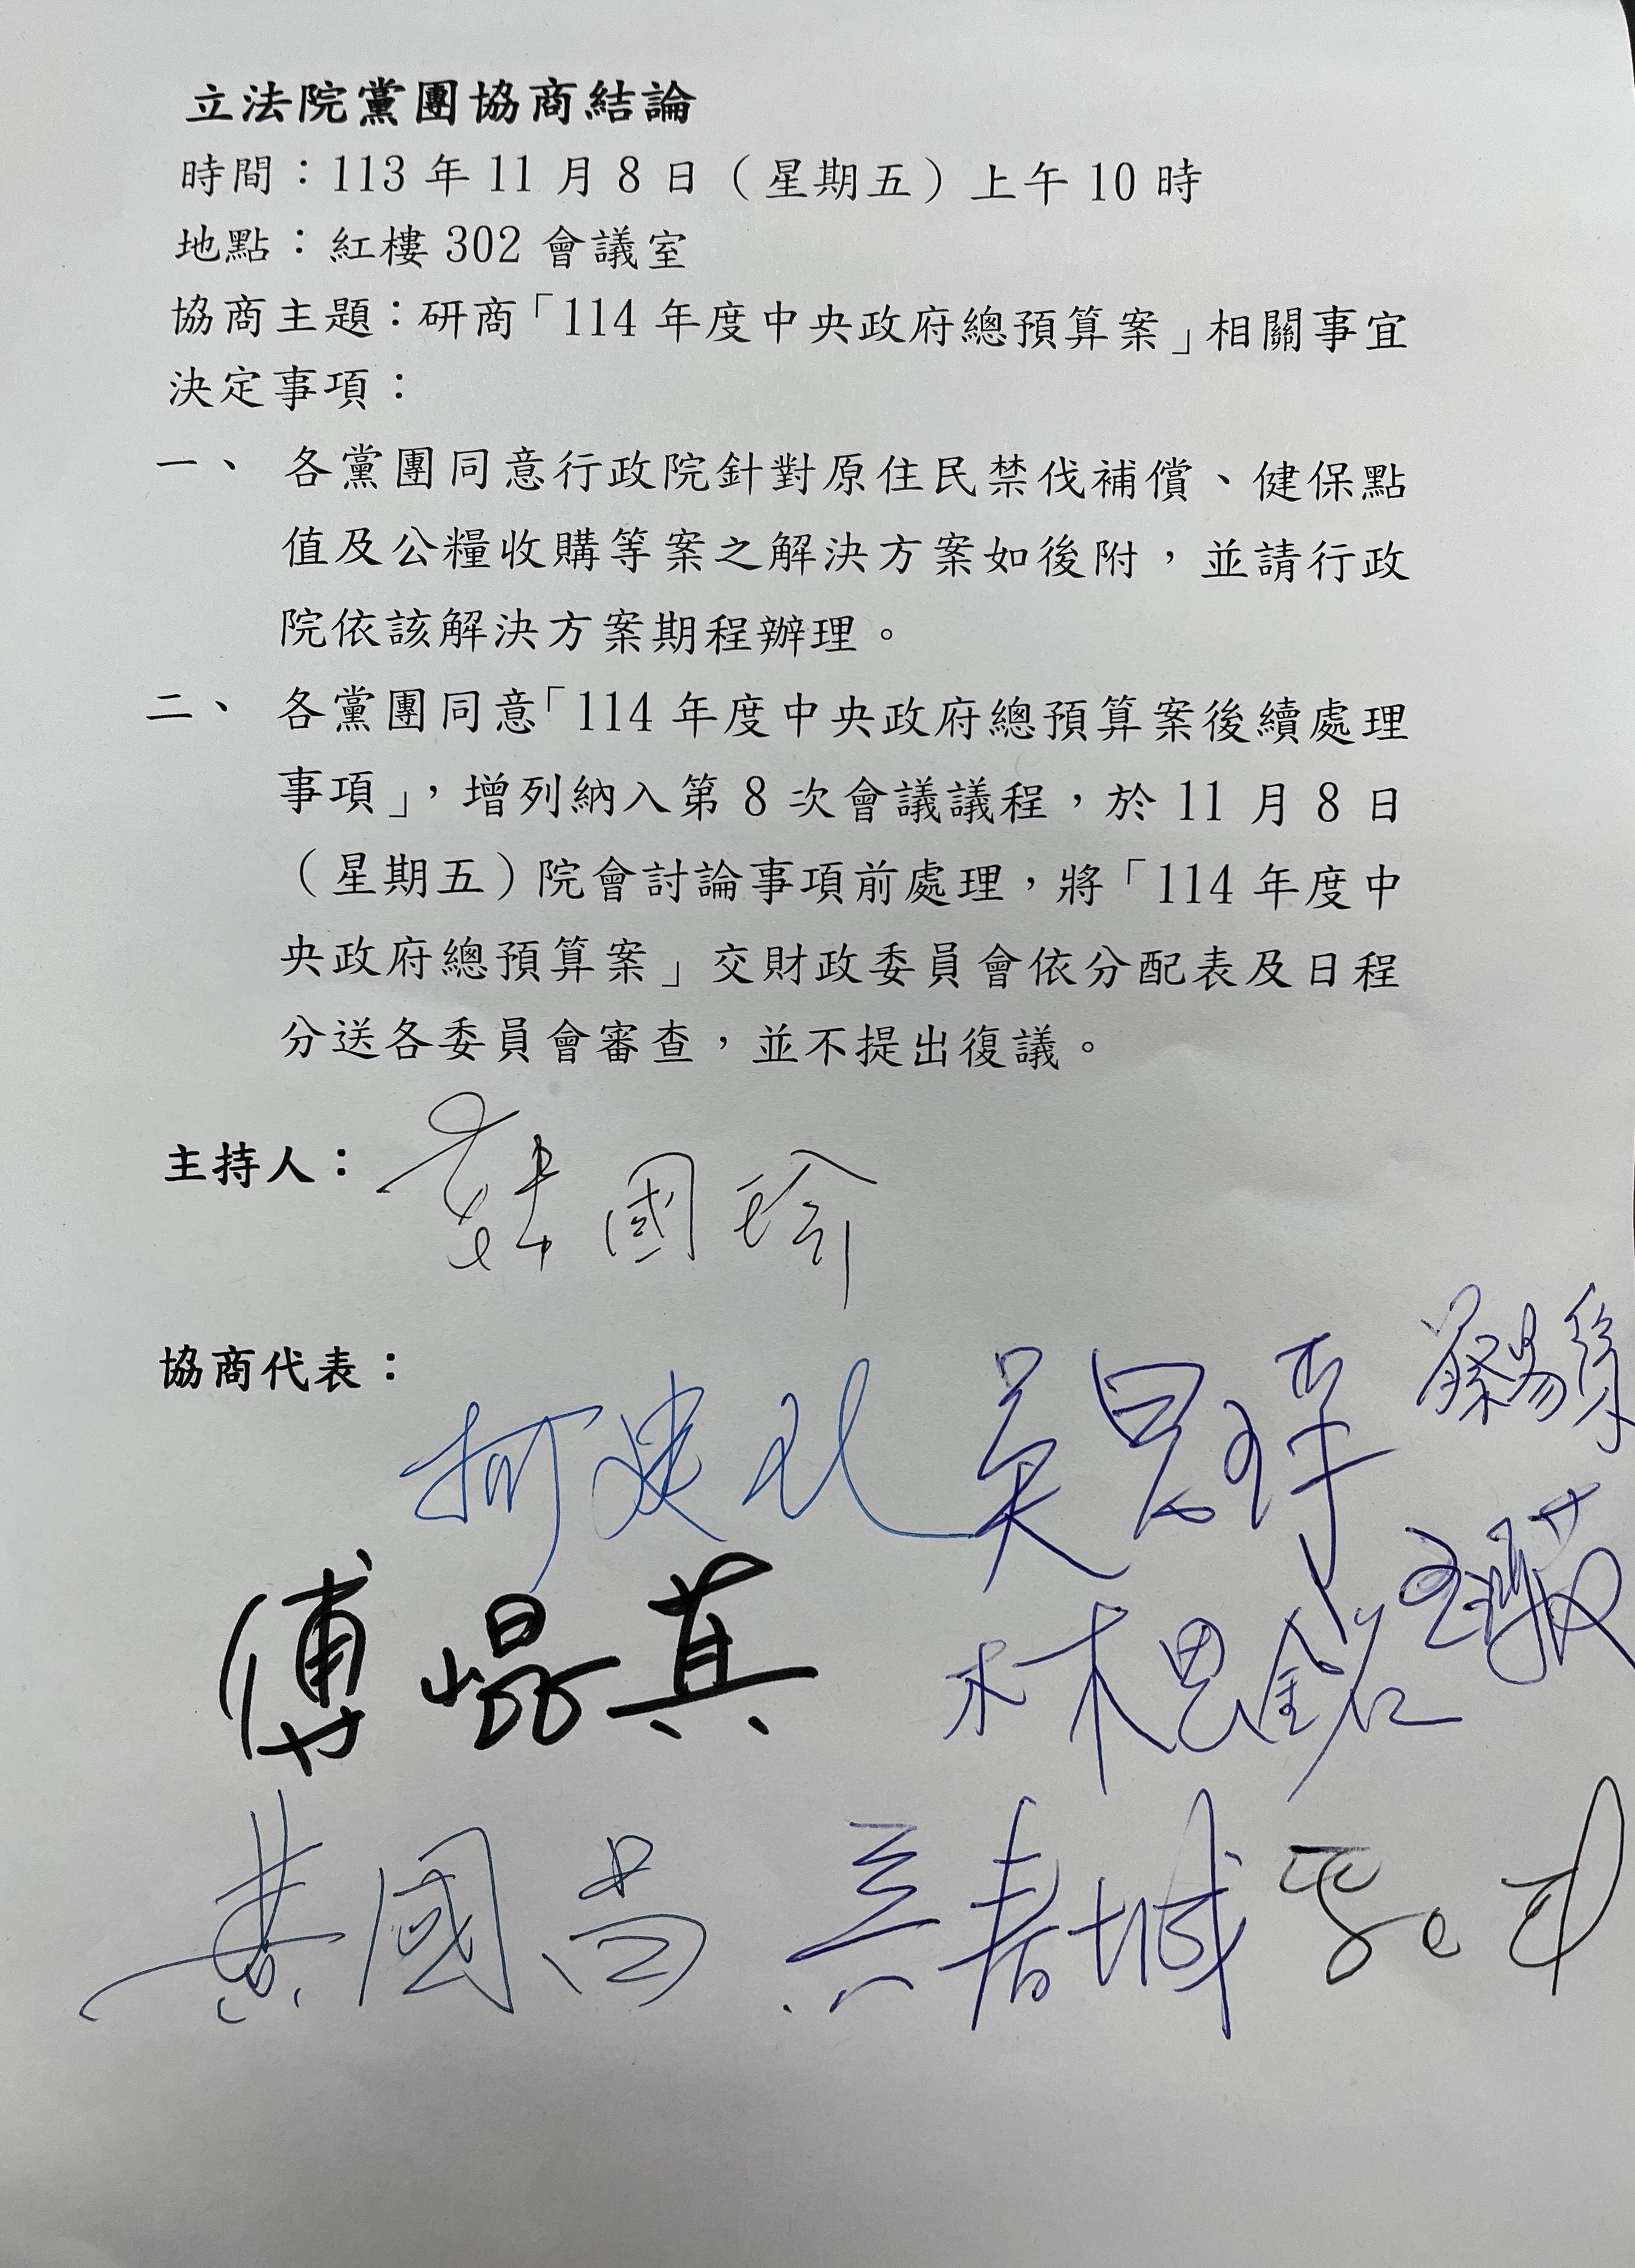 立法院黨團協商結論
時間：113年11月8日（星期五）上午10時
地點：紅樓302會議室
協商主題：研商「114年度中央政府總預算案」相關事宜
決定事項：
一、各黨團同意行政院針對原住民禁伐補償、健保點
值及公糧收購等案之解決方案如後附，並請行政
院依該解決方案期程辦理。
二、各黨團同意「114年度中央政府總預算案後續處理
事項」，增列納入第8次會議議程，於11月8日
（星期五）院會討論事項前處理，將「114年度中
央政府總預算案」交財政委員會依分配表及日程
分送各委員會審查，並不提出復議。
主持人：韓國瑜
協商代表：
蔡易餘
柯建銘 吳思瑤
傅崐萁 林思銘
黃國昌 吳春城